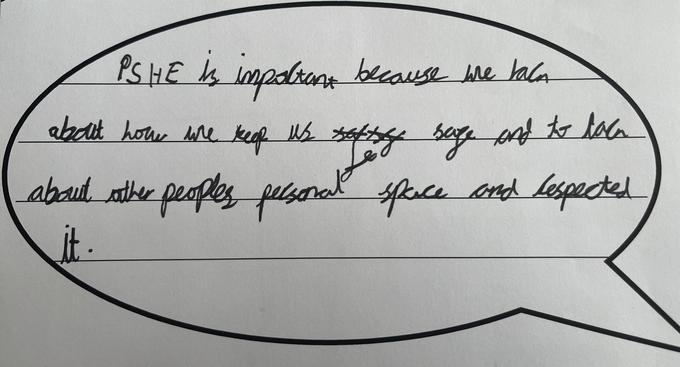 PSHE is important because we laln
about how we keep us safe and to laln
about other peoples personal space and respected
it.